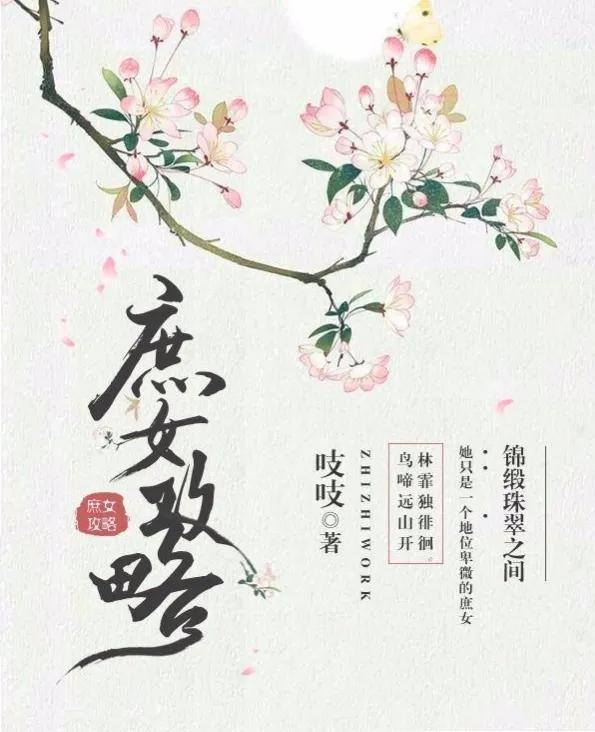 锦缎珠翠之间
她只是一个地位卑微的庶女
林霏独徘徊。
鸟啼远山开
ZHIZHIWORK
吱吱◎著
庶女攻略
庶女
攻略